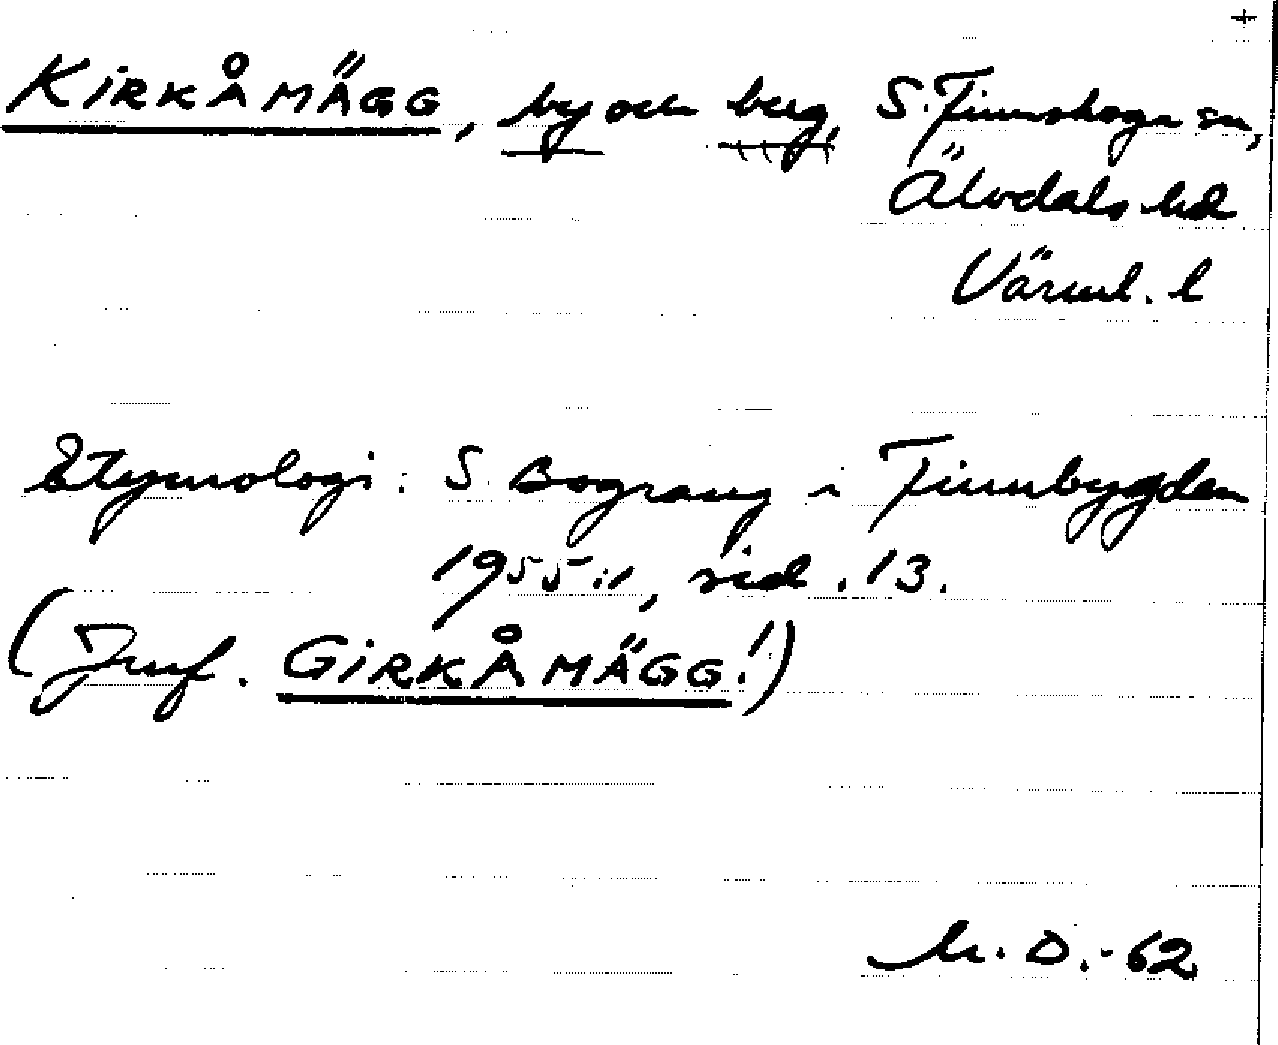 +
KIRKÅMÄGG, by och berg, S. Finnskoga sn,
Älvdals hd
Värml. l
Etymologi: S Bograng i Finnbygden
1955:1, sid. 13.
(Jmf. GIRKÅMÄGG!)
D.-62